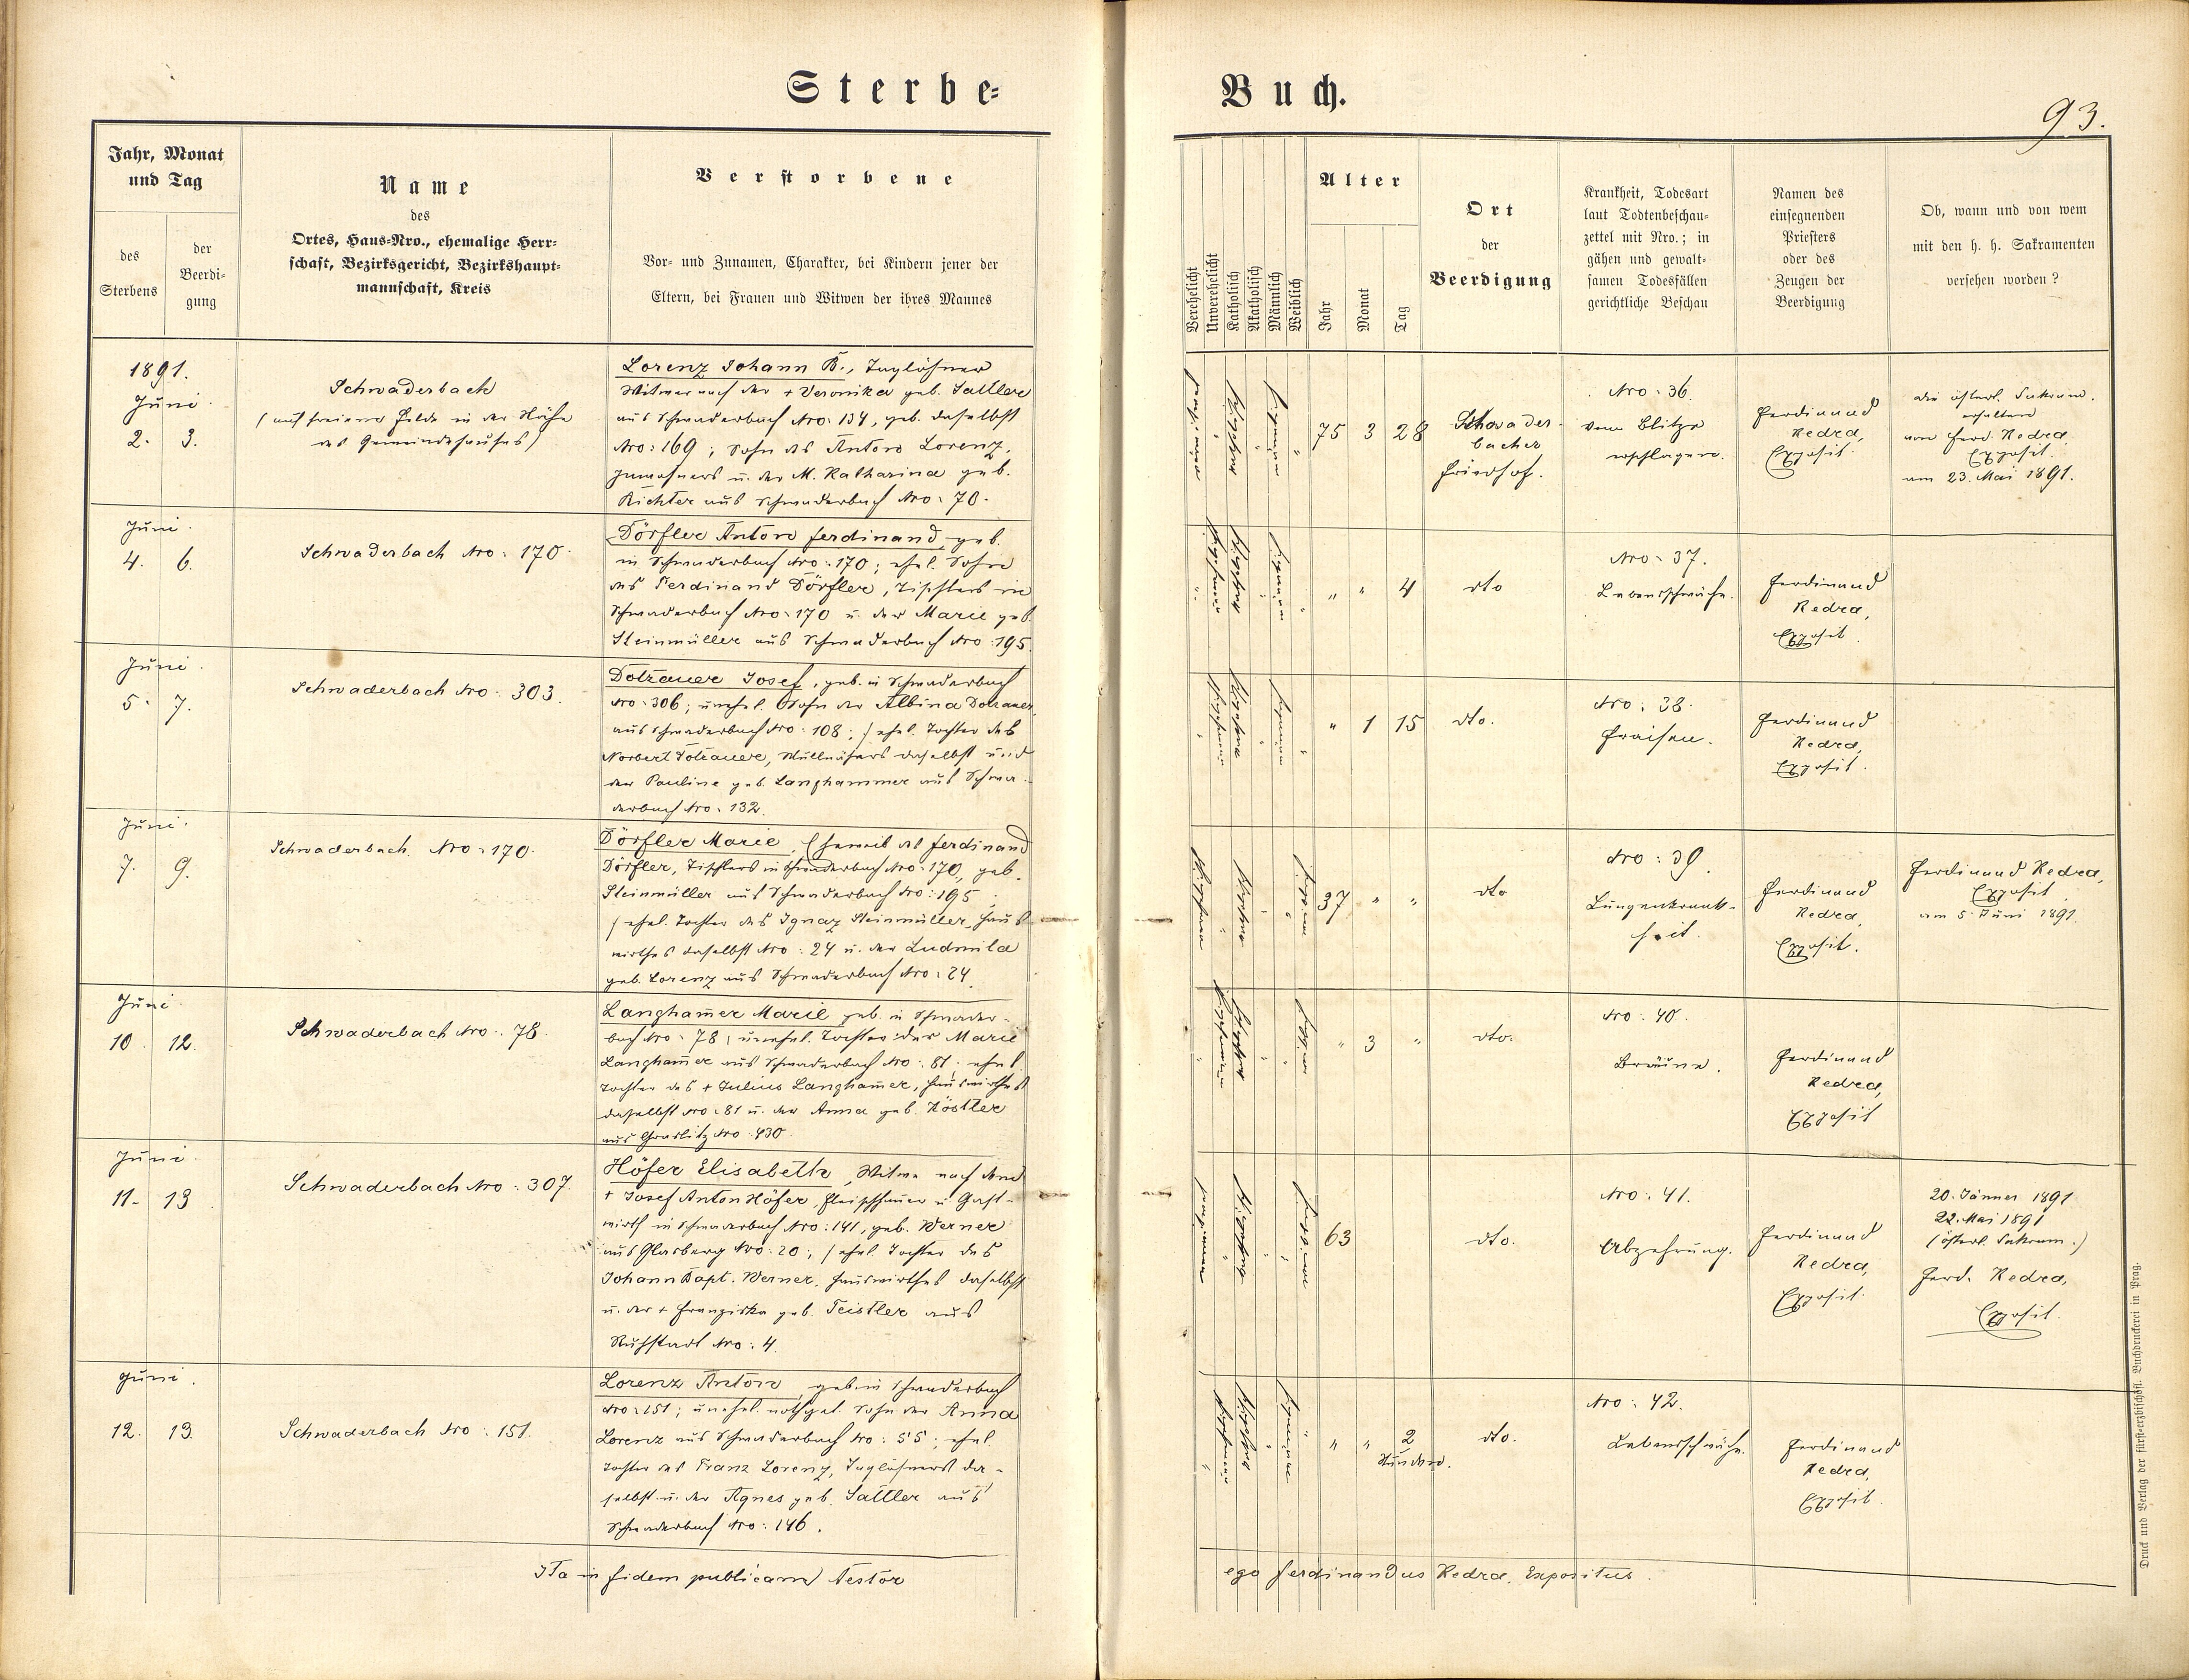 Sterbe-
Buch.
93.
Jahr, Monat
und Tag
des
Sterbens
der
Beerdi-
gung
Name
des
Ortes, Haus-Nro., ehemalige Herr-
schaft, Bezirksgericht, Bezirkshaupt-
mannschaft, Kreis
Verstorbene
Vor- und Zunamen, Charakter, bei Kindern jener der
Eltern, bei Frauen und Witwen der ihres Mannes
Verehelicht
Unverehelicht
Katholisch
Akatholisch
Männlich
Weiblich
Alter
Jahr
Monat
Tag
Ort
der
Beerdigung
Krankheit, Todesart
laut Todtenbeschau-
zettel mit Nro.; in
gähen und gewalt-
samen Todesfällen
gerichtliche Beschau
Namen des
einsegnenden
Priesters
oder des
Zeugen der
Beerdigung
Ob, wann und von wem
mit den h. h. Sakramenten
versehen worden?
1891.
Juni
2. 3.
Schwaderbach
(auf freiem Felde in der Nähe
des Gemeindehauses)
Lorenz Johann B., Taglöhner
Witwer nach der + Veronika geb. Sattler
aus Schwaderbach Nro: 134, geb. daselbst
Nro: 169; Sohn des Anton Lorenz,
Inwohners u. der M. Katharina geb.
Richter aus Schwaderbach Nro: 70.
75 3 28
Schwader-
bacher
Friedhof.
Nro: 36.
Vom Blitze
erschlagen.
Ferdinand
Kedra,
Exposit.
die österl. Sakram.
erhalten
von Ferd. Kedra
Exposit.
am 23. Mai 1891.
Juni
4. 6.
Schwaderbach Nro: 170
Dörfler Anton Ferdinand, geb.
in Schwaderbach Nro: 170; ehel. Sohn
des Ferdinand Dörfler, Tischlers in
Schwaderbach Nro: 170 u. der Marie geb.
Steinmüller aus Schwaderbach Nro: 195.
" " 4
dto
Nro: 37.
Lebensschwäche.
Ferdinand
Kedra,
Exposit.
Juni
5. 7.
Schwaderbach Nro: 303.
Dotzauer Josef, geb. in Schwaderbach
Nro: 306; unehel. Sohn der Albina Dotzauer
aus Schwaderbach Nro: 108; / ehel. Tochter des
Norbert Dotzauer, daselbst und
der Pauline geb. Langhammer aus Schwa-
derbach Nro: 132.
" 1 15
dto.
Nro: 38.
Fraisen.
Ferdinand
Kedra,
Exposit.
Juni
7. 9.
Schwaderbach Nro: 170.
Dörfler Marie, Eheweib des Ferdinand
Dörfler, Tischlers in Schwaderbach Nro: 170, geb.
Steinmüller aus Schwaderbach Nro: 195
/ ehel. Tochter des Ignaz Steinmüller, Haus-
wirthes daselbst Nro: 24 u. der Ludmila
geb. Lorenz aus Schwaderbach Nro: 24.
37 " "
dto
Nro: 39.
Lungenkrank-
heit.
Ferdinand
Kedra,
Exposit.
Ferdinand Kedra,
Exposit
am 5. Juni 1891.
Juni
10. 12.
Schwaderbach Nro: 78
Langham̅er Marie geb. in Schwader-
bach Nro: 78; unehel. Tochter der Marie
Langham̅er aus Schwaderbach Nro: 81; ehel.
Tochter des + Julius Langham̅er, Hauswirthes
daselbst Nro: 81 u. der Anna geb. Köstler
aus Graslitz Nro: 430.
" 3 "
dto.
Nro: 40.
Bräune.
Ferdinand
Kedra,
Exposit
Juni
11. 13
Schwaderbach Nro: 307.
Höfer Elisabeth, Witwe nach dem
+ Josef Anton Höfer, Fleischhauer u. Gast-
wirth in Schwaderbach Nro: 141, geb. Werner
aus Glasberg Nro: 20; / ehel. Tochter des
Johann Bapt. Werner, Hauswirthes daselbst
u. der + Franziska geb. Teistler aus
Ruhstadt Nro: 4.
63
dto.
Nro: 41.
Abzehrung.
Ferdinand
Kedra,
Exposit.
20. Jänner 1891
22. Mai 1891
(österl. Sakram.)
Ferd. Kedra,
Exposit.
Juni
12. 13.
Schwaderbach Nro: 151.
Lorenz Anton, geb. in Schwaderbach
Nro: 151; unehel. nothget. Sohn der Anna
Lorenz aus Schwaderbach Nro: 55; ehel.
Tochter des Franz Lorenz, Taglöhners da-
selbst u. der Agnes geb. Sattler aus
Schwaderbach Nro: 146.
" " 2
Stunden.
dto.
Nro: 42.
Lebensschwäche.
Ferdinand
Kedra,
Exposit.
Ita in fidem publicam testor
ego Ferdinandus Kedra, Expositus.
Druck und Verlag der fürst-erzbischöfl. Buchdruckerei in Prag.